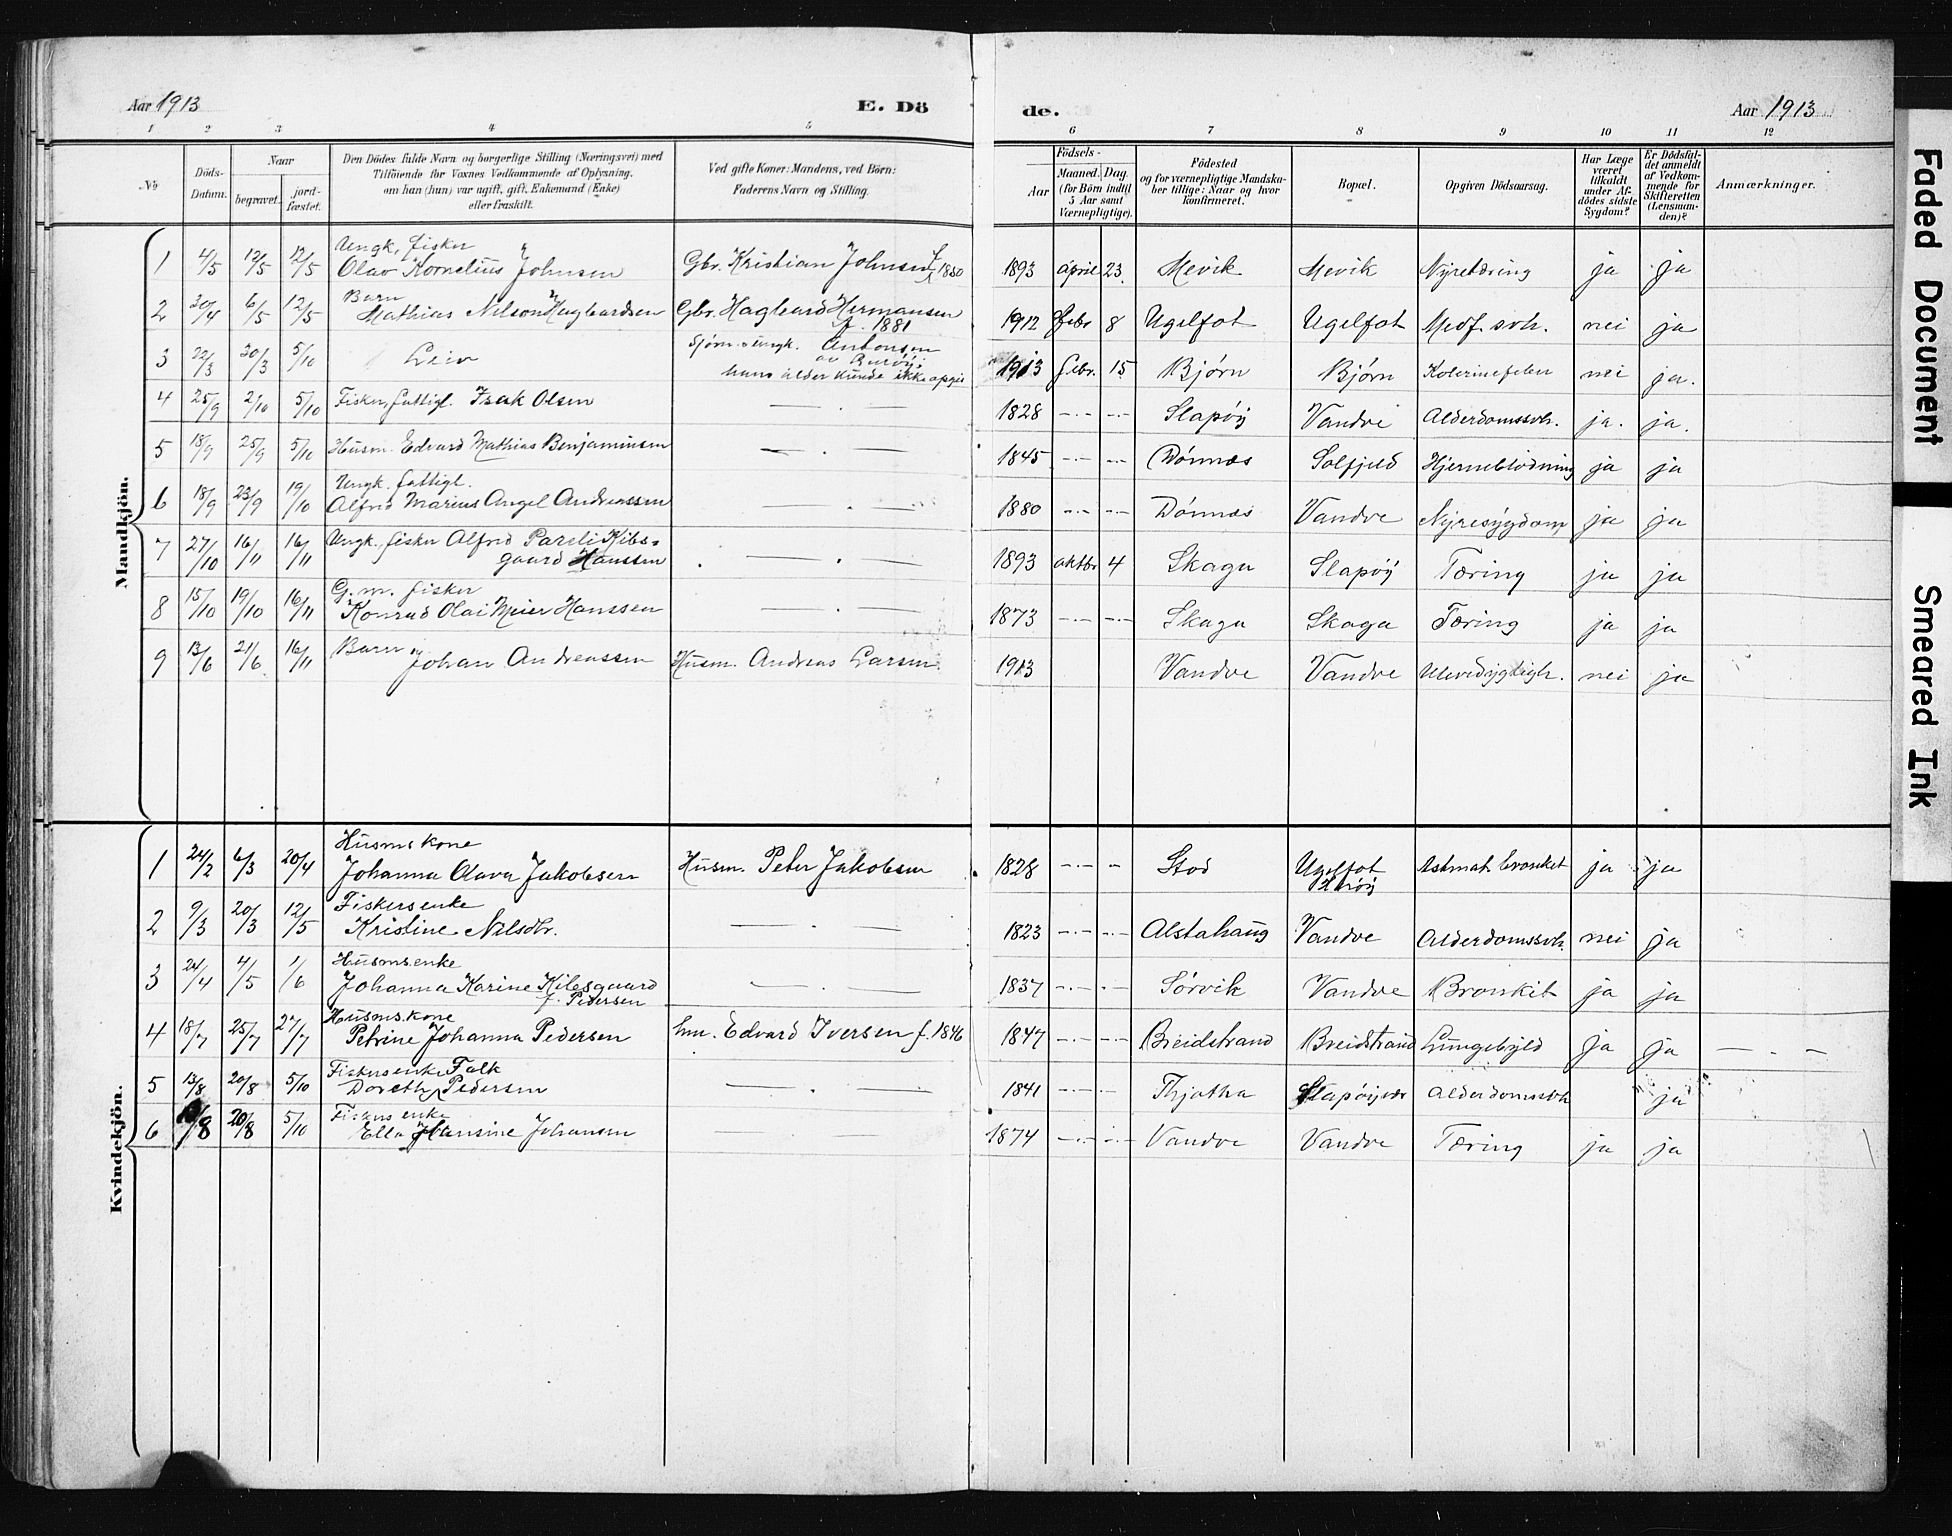 Aar 1913 E. Dö de. Aar 1913
1 2 3 4 5 6 7 8 9 10 11 12
No
Döds-Datum.
Naar
begravet.
jord-fæstet.
Den Dödes fulde Navn og borgerlige Stilling (Næringsvei) med
Tilföiende for Voxnes Vedkommende af Oplysning,
om han (hun) var ugift, gift, Enkemand (Enke)
eller fraskilt.
Ved gifte Koner: Mandens, ved Börn:
Faderens Navn og Stilling.
Födsels-
Aar
Maaned. Dag.
(for Börn indtil
5 Aar samt
Værnepligtige).
Födested
og for værnepligtige Mandska-
ber tillige: Naar og hvor
konfirmeret.
Bopæl.
Opgiven Dödsaarsag.
Har Læge
været
tilkaldt
under Af-
dödes sidste
Sygdom?
Er Dödsfal-
det anmeldt
af Vedkom-
mende for
Skifteretten
(Lensman-
den)?
Anmærkninger.
Mandkjön.
1 4/5 12/5 12/5 Ungk. fisker
Olav Kornelius Johnsen Gbr. Kristian Johnsen f. 1850 1893 april 23 Mevik Mevik Nyretæring ja ja
2 30/4 6/5 12/5 Barn
Mathias Nilson Hagbardsen Gbr. Hagbard Hermansen
f. 1881 1912 Febr 8 Ugelfot Ugelfot Medf. svh. nei ja
3 22/3 30/3 5/10 Leiv Sjøm. ungk. Antonsen
av Burøy;
hans alder kunde ikke opgis 1913 febr. 15 Bjørn Bjørn nei ja.
4 25/9 2/10 5/10 Fisker, fattigl. Isak Olsen — . — 1828 -.- -.- Slapøy Vandve Alderdomssvh. ja. ja.
5 18/9 25/9 5/10 Husm. Edvard Mathias Benjaminsen — . — 1845 -.- -.- Dønnæs Solfjeld Hjerneblødning ja ja
6 18/9 23/9 19/10 Ungk. fattigl.
Alfred Marius Angel Andreassen — . — 1880 -.- -.- Dønnæs Vandve Nyresygdom, ja ja
7 27/10 16/11 16/11 Ungk. fisker Alfred Pareli Kibs-
gaard Hanssen — . — 1893 oktbr 4 Skaga Slapøy Tæring ja ja
8 15/10 19/10 16/11 G.m. fisker
Konrad Olai Meier Hanssen — . — 1873 -.- -.- Skaga Skaga Tæring ja ja
9 13/6 21/6 16/11 Barn
Johan Andreassen Husm. Andreas Larsen 1913 Vandve Vandve Ulevedygtigh. nei ja
Kvindekjön.
1 24/2 6/3 20/4 Husmskone
Johanna Olava Jakobsen Husm. Peter Jakobsen 1828 -.- - Stod Ugelfot Astmat. bronket ja ja
2 9/3 20/3 12/5 Fiskersenke
Kristine Nilsdtr. — . — 1823 -.- -.- Alstahaug Vandve Alderdomssvh. nei ja
3 24/4 4/5 1/6 Husmsenke
Johanna Karine Kibsgaard
f. Pedersen — . — 1837 -.- -.- Sørvik Vandve Bronkit ja ja
4 18/7 25/7 27/7 Husmskone
Petrine Johanna Pedersen hm. Edvard Iversen f. 1846 1847 -.- -.- Breidstrand Breidstrand Lungebyld ja ja — . —
5 13/8 20/8 5/10 Fiskersenke Falk
Doreth Pedersen — . — 1841 -.- -.- Thjøtta Slapøyvær Alderdomssvh ja
6 /8 20/8 5/10 Fiskersenke
Ella Hansine Johansen — . — 1874 -.- -.- Vandve Vandve Tæring ja ja
Faded Document
Smeared Ink